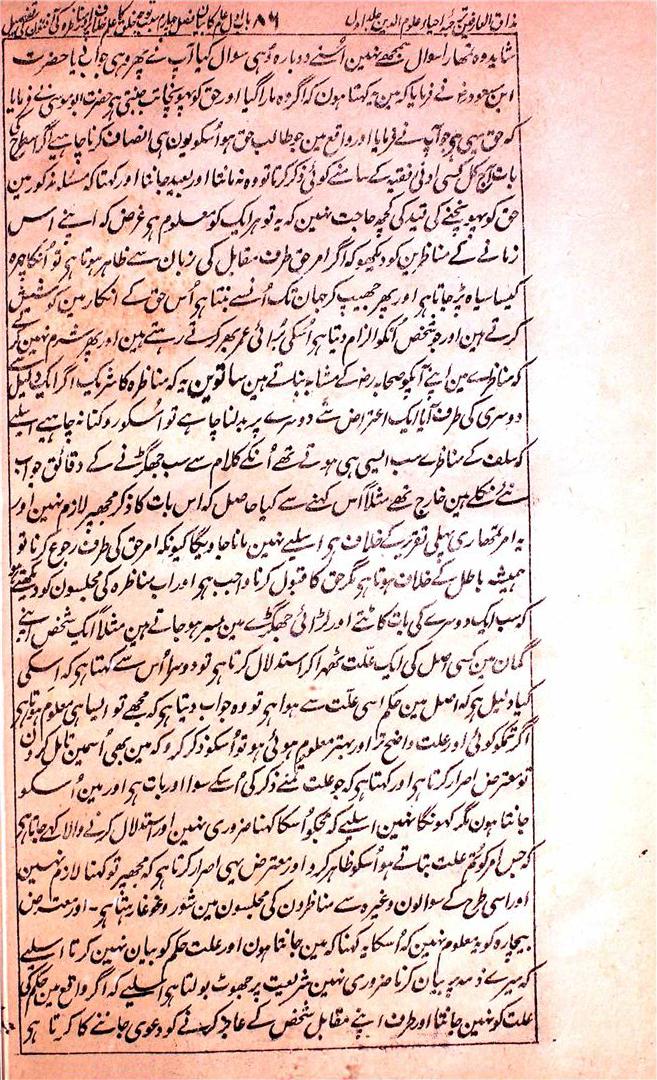 مذاق العارفین ترجمہ احیاء علوم الدین جلد اول ۸۶ باب
شاید وہ تمھارا سوال سمجھے نہین اُسنے دوبارہ وہی سوال کیا آپ نے پھر وہی جواب دیا حضرت
ابن مسعود رضؓ نے فرمایا کہ مین یہ کہتا ہون کہ اگر وہ مارا گیا اور حق کو پہونچا تب جنتی ہو حضرت ابو موسیٰ نے فرمایا
کہ حق یہی ہو جو آپ نے فرمایا اور واقع مین جو طالب حق ہو اُسکو یون ہی انصاف کرنا چاہیے اگر اسطرح کی
بات آج کل کسی ادنی فقیہ کے سامنے کوئی ذکر کرتا تو وہ نہ مانتا اور بعید جانتا اور کہتا کہ مسئلہ مذکور مین
حق کو پہونچنے کی قید کی کچھ حاجت نہین کہ یہ تو ہر ایک کو معلوم ہو غرض کہ اپنے اس
زمانے کے مناظرین کو دیکھو کہ اگر امر حق طرف مقابل کی زبان سے ظاہر ہوتا ہو تو اُنکا چہرہ
کیسا سیاہ پڑ جاتا ہو اور پھر جھیپ کر جہان تک اُنسے بنتا ہو اُس حق کے انکار مین کوشش
کرتے ہین اور جو شخص اُنکو الزام دیتا ہو اُسکی بُرائی عمر بھر کرتے رہتے ہین اور پھر شرم نہین کرتے
کہ مناظرے مین اپنے آپکو صحابہ رضؓ کے مشابہ بناتے ہین ساتوین یہ کہ مناظرہ کا شریک اگر ایک دلیل سے
دوسری کی طرف آیا ایک اعتراض سے دوسرے پر بدلنا چاہے تو اُسکو روکنا نہ چاہیے اسلیے
کہ سلف کے مناظرے سب ایسی ہی ہوتے تھے اُنکے کلام سے سب جھگڑنے کے دقائق جو اب
نئے نکلے ہین خارج تھے مثلاً اس کہنے سے کیا حاصل کہ اس بات کا ذکر مجھپر لازم نہین اور
یہ امر تمھاری پہلی تقریر کے خلاف ہو اسلیے نہین مانا جاویگا کیونکہ امر حق کی طرف رجوع کرنا تو
ہمیشہ باطل کے خلاف ہوتا ہو مگر حق کا قبول کرنا واجب ہو اور اب مناظرہ کی مجلسون کو دیکھتے ہو
کہ سب ایک دوسرے کی بات کاٹنے اور لڑائی جھگڑے مین بسر ہو جاتے ہین مثلاً ایک شخص اپنے
گمان مین کسی اصل کی ایک علّت ٹھہرا کر استدلال کرتا ہو تو دوسرا اُس سے کہتا ہو کہ اسکی
کیا دلیل ہو کہ اصل مین حکم اسی علّت سے ہوا ہو تو وہ جواب دیتا ہو کہ مجھے تو ایسا ہی معلوم ہوتا ہو
اگر تمکو کوئی اور علت واضح تر اور بہتر معلوم ہوئی ہو تو اُسکو ذکر کرو کہ مین بھی اُسمین تامل کرون
تو معترض اصرار کرتا ہو اور کہتا ہو کہ جو علت تمنے ذکر کی اُسکے سوا اور بات ہو اور مین اُسکو
جانتا ہون مگر کہونگا نہین اسلیے کہ مجکو اُسکا کہنا ضروری نہین اور استدلال کرنے والا کہے جاتا ہو
کہ جس امر کو تم علت بتاتے ہو اُسکو ظاہر کرو اور معترض یہی اصرار کرتا ہو کہ مجھپر تو کہنا لازم نہین
اور اسی طرح کے سوالون وغیرہ سے مناظرون کی مجلسون مین شور و غوغا رہتا ہو۔ اور معترض
بیچارہ کو یہ معلوم نہین کہ اُسکا یہ کہنا کہ مین جانتا ہون اور علت حکم کو بیان نہین کرتا اسلیے
کہ میرے ذمہ پر بیان کرنا ضروری نہین شریعت پر جھوٹ بولتا ہو اسلیے کہ اگر واقع مین حکم کی
علت کو نہین جانتا اور طرف اپنے مقابل شخص کے عاجز کرنے کو دعوی جاننے کا کرتا ہو